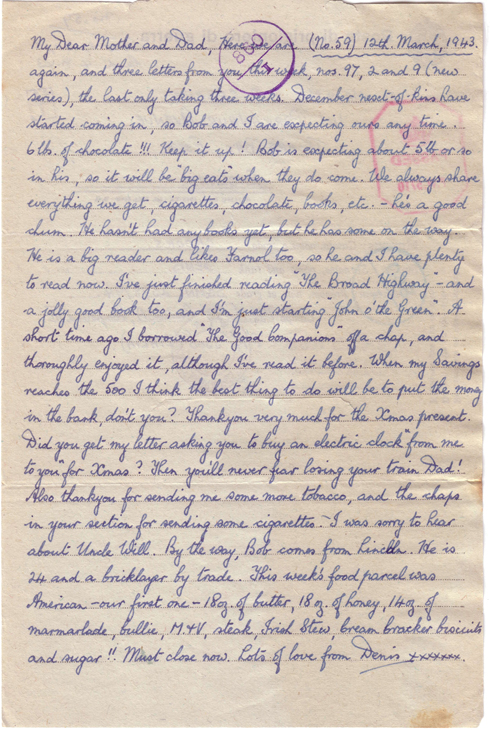 My Dear Mother and Dad, Here we are (No. 59) 12th. March, 1943.
again, and three letters from you this week, nos. 97, 2 and 9 (new
series), the last only taking three weeks. December next-of-kins have
started coming in, so Bob and I are expecting ours any time.
6 lbs. of chocolate !!! Keep it up! Bob is expecting about 5 lb or so
in his, so it will be "big eats" when they do come. We always share
everything we get, cigarettes, chocolate, books, etc. - he's a good
chum. He hasn't had any books yet, but he has some on the way.
He is a big reader and likes Farnol too, so he and I have plenty
to read now. I've just finished reading "The Broad Highway" - and
a jolly good book too, and I'm just starting "John o' the Green". A
short time ago I borrowed "The Good Companions" off a chap, and
thoroughly enjoyed it, although I've read it before. When my Savings
reaches the 500 I think the best thing to do will be to put the money
in the bank, don't you? Thankyou very much for the Xmas present.
Did you get my letter asking you to buy an electric clock "from me
to you" for Xmas? Then you'll never fear losing your train Dad!
Also thankyou for sending me some more tobacco, and the chaps
in your section for sending some cigarettes. - I was sorry to hear
about Uncle Will. By the way, Bob comes from Lincoln. He is
24 and a bricklayer by trade. This week's food parcel was
American - our first one - 18oz. of butter, 18 oz. of honey, 14oz. of
marmarlade, bullie, M+V, steak, Irish Stew, bream bracker biscuits
and sugar !! Must close now. Lots of love from Denis xxxxxxx.